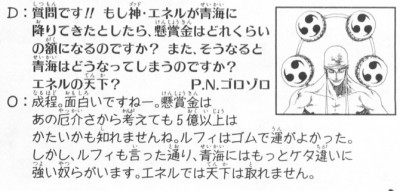 D：質問です!! もし神・エネルが青海に
降りてきたとしたら、懸賞金はどれくらい
の額になるのですか？ また、そうなると
青海はどうなってしまうのですか？
エネルの天下？ P.N.ゴロゾロ
O：成程。面白いですねー。懸賞金は
あの厄介さから考えても5億以上は
かたいかも知れませんね。ルフィはゴムで運がよかった。
しかし、ルフィも言った通り、青海にはもっとケタ違いに
強い奴らがいます。エネルでは天下は取れません。